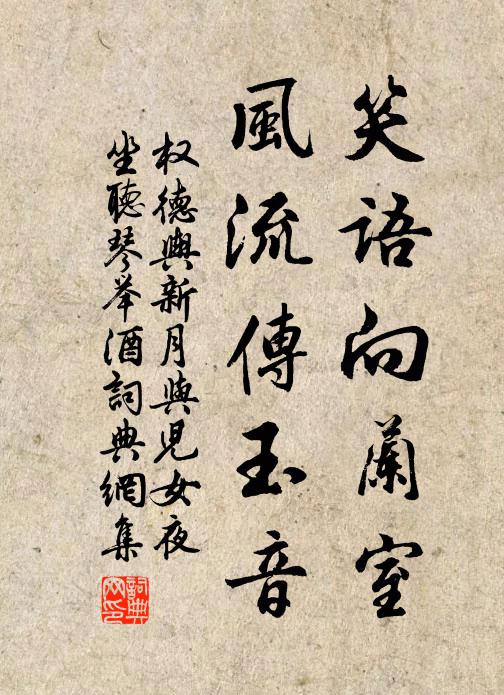 笑語向蘭室
風流傳玉音
权德輿新月與児女夜
坐聽琴举酒詞典網集
詞典